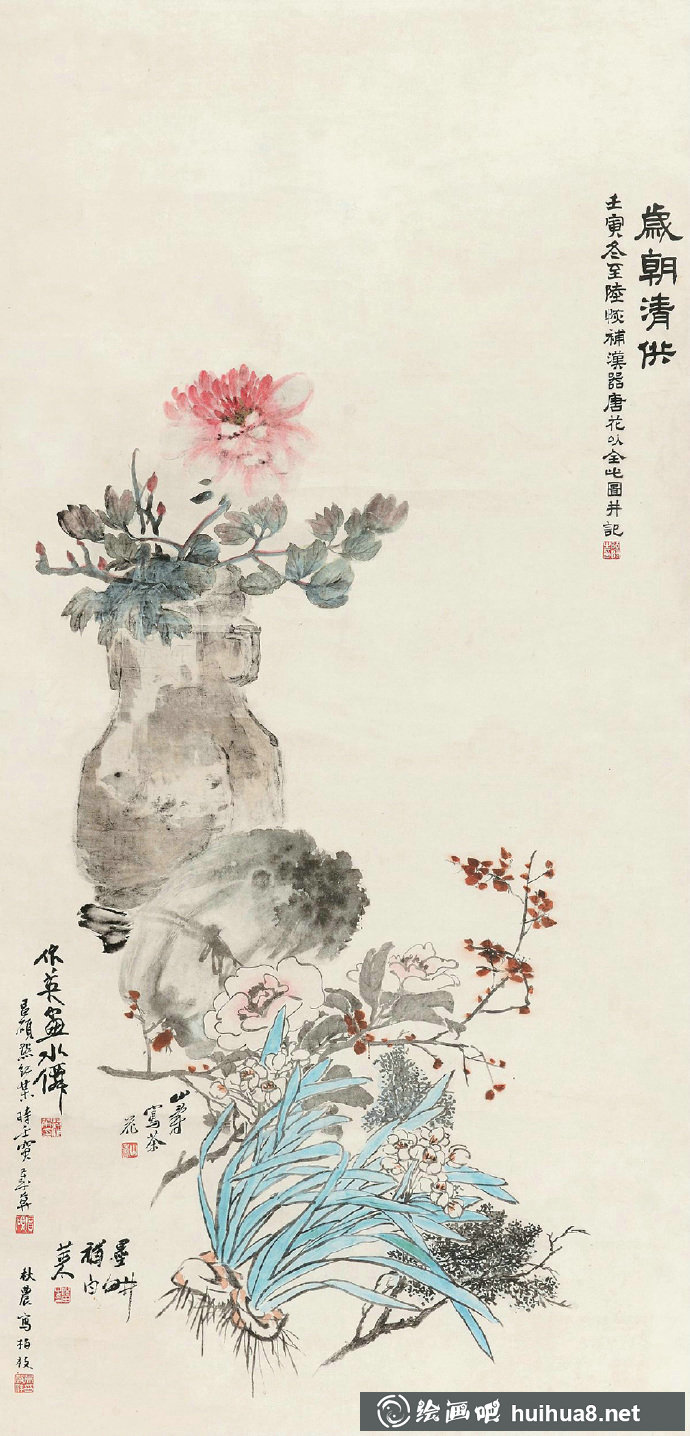 歲朝清供
壬寅冬至陸恢補漢器唐花以全此圖并記
山壽
寫茶
花
英畫水僊
昌碩點紅葉時壬寅
墨畊
補白
秋農寫柏枝
绘画吧 huihua8.net